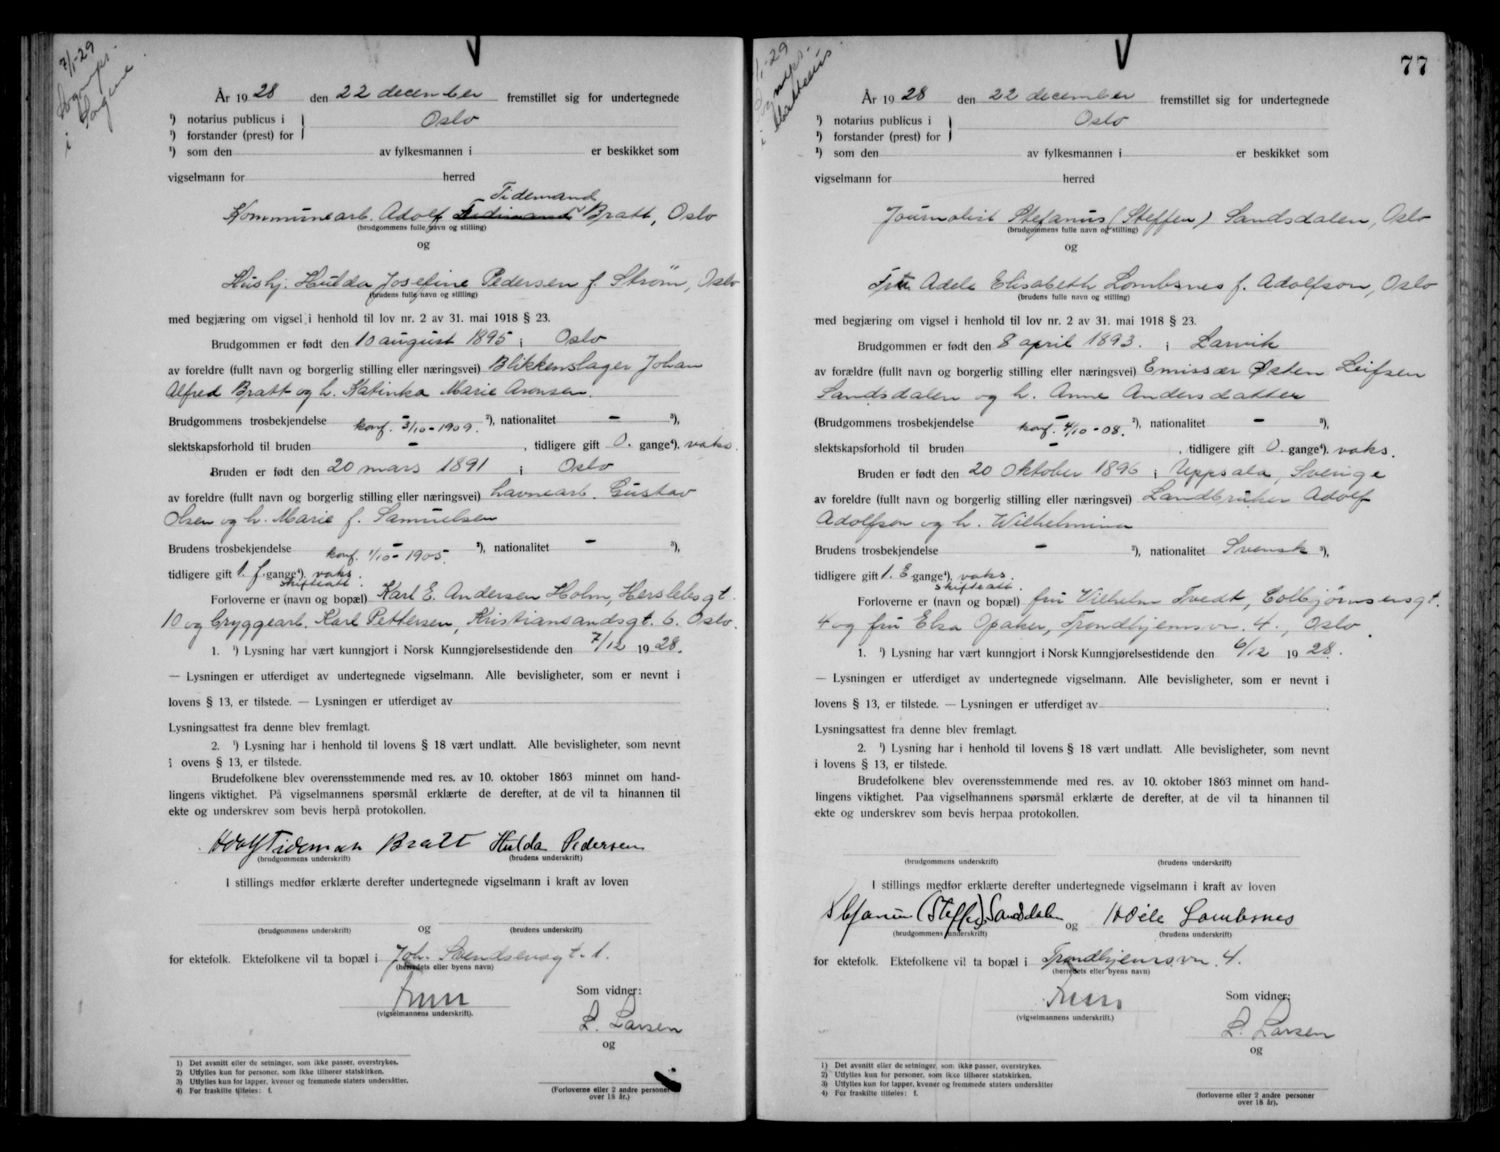 7/1-29
i Sogn
År 1928 den 22 december fremstillet sig for undertegnede
¹) notarius publicus i
Oslo
¹) forstander (prest) for
¹) som den av fylkesmannen i er beskikket som
vigselmann for herred
Tidemand
Kommunearb. Adolf Ferdinand Bratt, Oslo
(brudgommens fulle navn og stilling)
og
Hushj. Hulda Josefine Pedersen f. Strøm, Oslo
(brudens fulle navn og stilling)
med begjæring om vigsel i henhold til lov nr. 2 av 31. mai 1918 § 23.
Brudgommen er født den 10 august 1895 i Oslo
av foreldre (fullt navn og borgerlig stilling eller næringsvei) Blikkenslager Johan
Alfred Bratt og h. Katinka Marie Aronsen.
Brudgommens trosbekjendelse konf. 3/10-1909. ²), nationalitet — ³),
slektskapsforhold til bruden — , tidligere gift 0. gange⁴). vaks.
Bruden er født den 20 mars 1891 i Oslo
av foreldre (fullt navn og borgerlig stilling eller næringsvei) havnearb. Gustav
Olsen og h. Marie f. Samuelsen
Brudens trosbekjendelse konf. 1/10-1905. ²), nationalitet — ³),
tidligere gift 1. f. gange⁴). vaks.
skifteatt.
Forloverne er (navn og bopæl) Karl E. Andersen Holm, Herslebsgt.
10 og Bryggearb. Karl Pettersen, Kristiansandsgt. 6. Oslo.
1. ¹) Lysning har vært kunngjort i Norsk Kunngjørelsestidende den 7/12 1928.
— Lysningen er utferdiget av undertegnede vigselmann. Alle bevisligheter, som er nevnt i
lovens § 13, er tilstede. — Lysningen er utferdiget av
Lysningsattest fra denne blev fremlagt.
2. ¹) Lysning har i henhold til lovens § 18 vært undlatt. Alle bevisligheter, som nevnt
i ovens § 13, er tilstede.
Brudefolkene blev overensstemmende med res. av 10. oktober 1863 minnet om hand-
lingens viktighet. På vigselmannens spørsmål erklærte de derefter, at de vil ta hinannen til
ekte og underskrev som bevis herpå protokollen.
Adolf Tideman Bratt Hulda Pedersen
(brudgommens underskrift) (brudens underskrift)
I stillings medfør erklærte derefter undertegnede vigselmann i kraft av loven
og
(brudgommens underskrift) (brudens underskrift)
for ektefolk. Ektefolkene vil ta bopæl i Joh. Svendsensgt. 1.
(herredets eller byens navn)
Som vidner:
(vigselmannens underskrift).
L. Larsen
og
1) Det avsnitt eller de setninger, som ikke passer, overstrykes.
2) Utfylles kun for personer, som ikke tilhører statskirken.
3) Utfylles kun for lapper, kvener og fremmede staters undersåtter.
4) For fraskilte tilføies: f.
(Forloverne eller 2 andre personer
over 18 år.)
77
1-29
i Matteus
År 1928 den 22 december fremstillet sig for undertegnede
¹) notarius publicus i
Oslo
¹) forstander (prest) for
¹) som den av fylkesmannen i er beskikket som
vigselmann for herred
Journalist Stefanus (Steffen) Sandsdalen, Oslo
(brudgommens fulle navn og stilling)
og
Fru Adele Elisabeth Lombsnes f. Adolfson, Oslo
(brudens fulle navn og stilling)
med begjæring om vigsel i henhold til lov nr. 2 av 31. mai 1918 § 23.
Brudgommen er født den 8 april 1893. i Larvik
av forældre (fullt navn og borgerlig stilling eller næringsvei) Emissær Østen Leifsen
Sandsdalen og h. Anne Andersdatter
(Brudgommens trosbekjendelse konf. 4/10-08. ²), nationalitet — ³),
slektskapsforhold til bruden — , tidligere gift 0. gange⁴). vaks.
Bruden er født den 20 oktober 1896 i Uppsala, Sverige
av foreldre (fullt navn og borgerlig stilling eller næringsvei) Landbruker Adolf
Adolfson og h. Wilhelmina
Brudens trosbekjendelse — ²), nationalitet Svensk ³),
tidligere gift 1. E gange⁴). vaks.
skifteatt.
Forloverne er (navn og bopæl) fru Wilhelm Tvedt, Colbjørnsensgt.
4 og fru Elsa Opaker, Trondhjemsvn. 4., Oslo
1. ¹) Lysning har vært kunngjort i Norsk Kunngjørelsestidende den 6/12 1928.
— Lysningen er utferdiget av undertegnede vigselmann. Alle bevisligheter, som er nevnt i
lovens § 13, er tilstede. — Lysningen er utferdiget av
Lysningsattest fra denne blev fremlagt.
2. ¹) Lysning har i henhold til lovens § 18 vært undlatt. Alle bevisligheter, som nevnt
i lovens § 13, er tilstede.
Brudefolkene blev overensstemmende med res. av 10. oktober 1863 minnet om hand-
lingens viktighet. Paa vigselmannens spørsmål erklærte de derefter, at de vil ta hinannen til
ekte og underskrev som bevis herpaa protokollen.
(brudgommens underskrift) (brudens underskrift)
I stillings medfør erklærte derefter undertegnede vigselmann i kraft av loven
Stefanus (Steffen) Sandsdalen og Adéle Lombsnes
(brudgommens underskrift) (brudens underskrift)
for ektefolk. Ektefolkene vil ta bopæl i Trondhjemsvn. 4.
(herredets eller byens navn)
Som vidner:
(vigselmannens underskrift.)
L. Larsen
og
1) Det avsnitt eller de setninger, som ikke passer, overstrykes.
2) Utfylles kun for personer, som ikke tilhører statskirken.
3) Utfylles kun for lapper, kvener og fremmede staters undersåtter
4) For fraskilte tilføies: f.
(forloverne eller 2 andre personer
over 18 år).